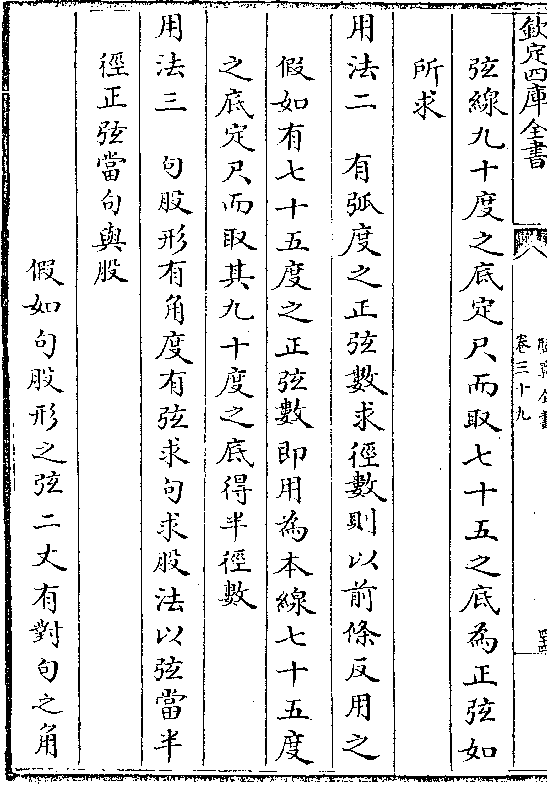 欽定四庫全書
卷三十九
弦線九十度之底定尺而取七十五之底為正弦如
所求
用法二　有弧度之正弦數求徑數則以前條反用之
假如有七十五度之正弦數即用為本線七十五度
之底定尺而取其九十度之底得半徑數
用法三　句股形有角度有弦求句求股法以弦當半
徑正弦當句與股
假如句股形之弦二丈有對句之角